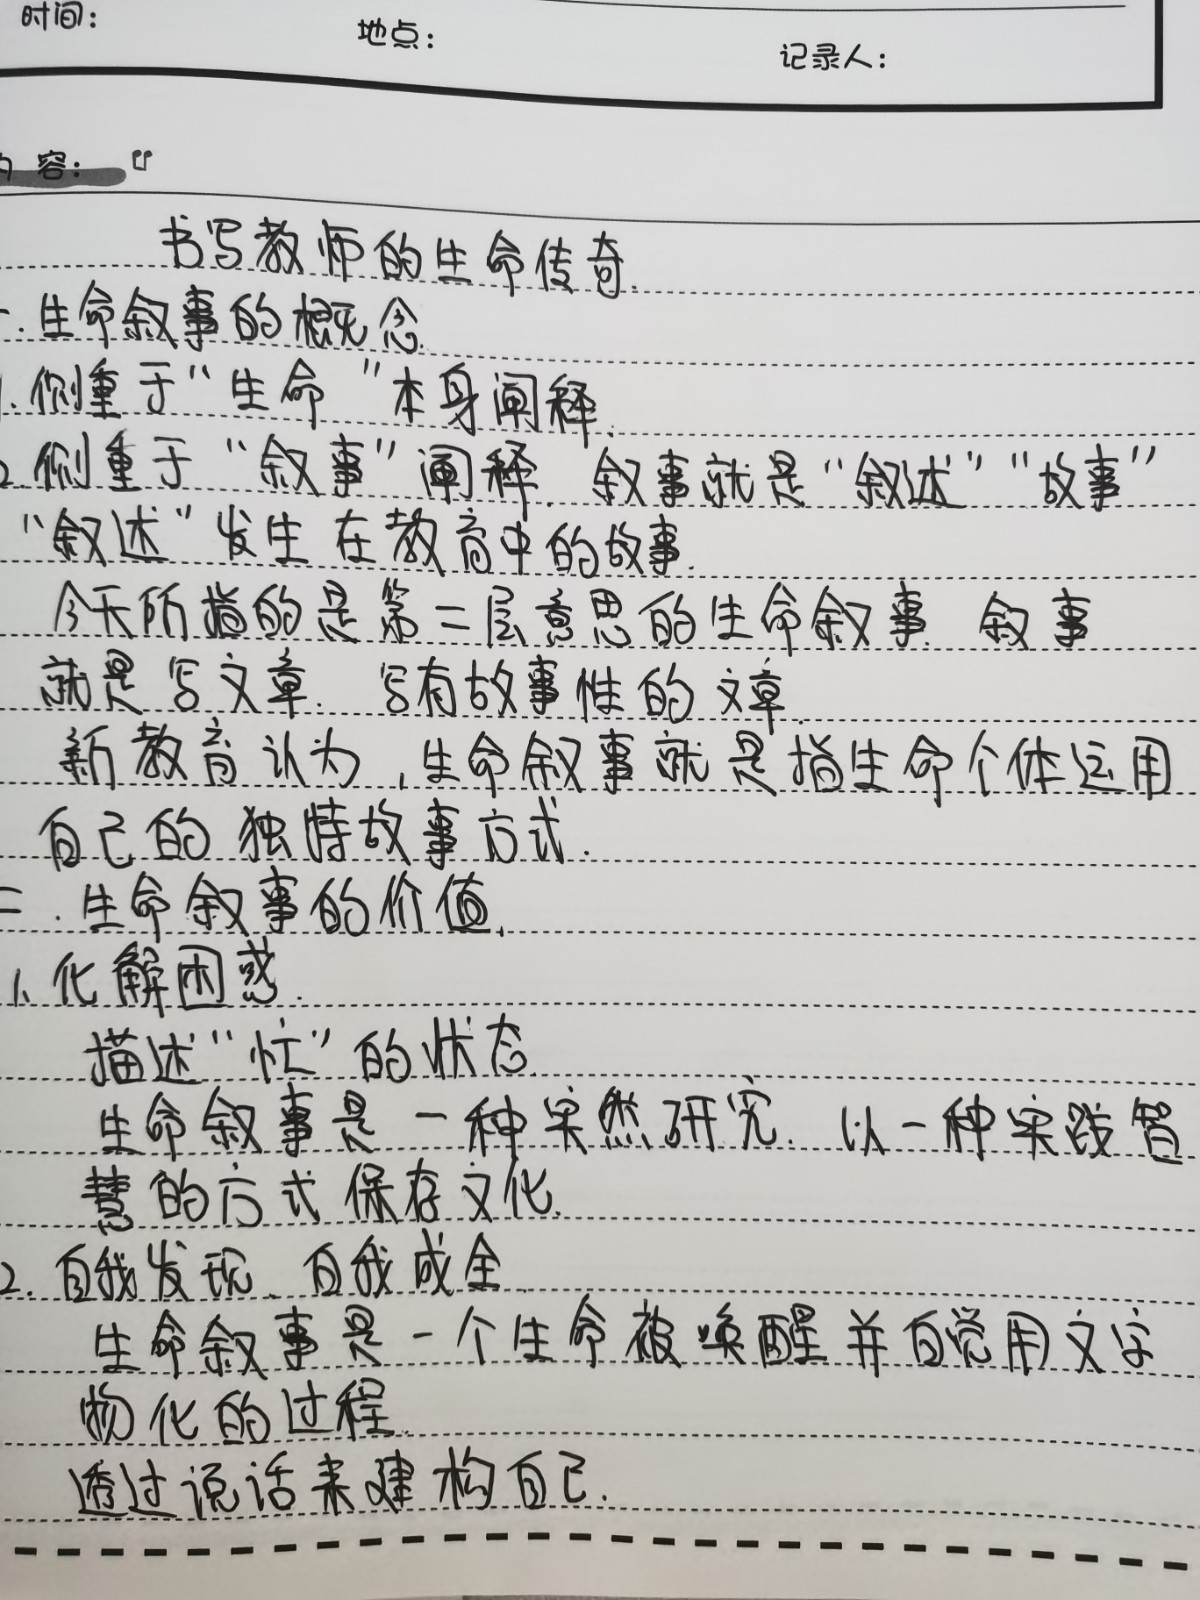 时间：
地点：
记录人：
内容：
书写教师的生命传奇.
一.生命叙事的概念.
1.侧重于“生命”本身阐释.
2.侧重于“叙事”阐释.叙事就是“叙述”“故事”
“叙述”发生在教育中的故事.
今天所指的是第二层意思的生命叙事.叙事
就是写文章.写有故事性的文章.
新教育认为,生命叙事就是指生命个体运用
自己的独特故事方式.
二.生命叙事的价值.
1、化解困惑.
描述“忙”的状态.
生命叙事是一种实然研究.以一种实践智
慧的方式保存文化.
2.自我发现、自我成全.
生命叙事是一个生命被唤醒并自觉用文字
物化的过程.
透过说话来建构自己.